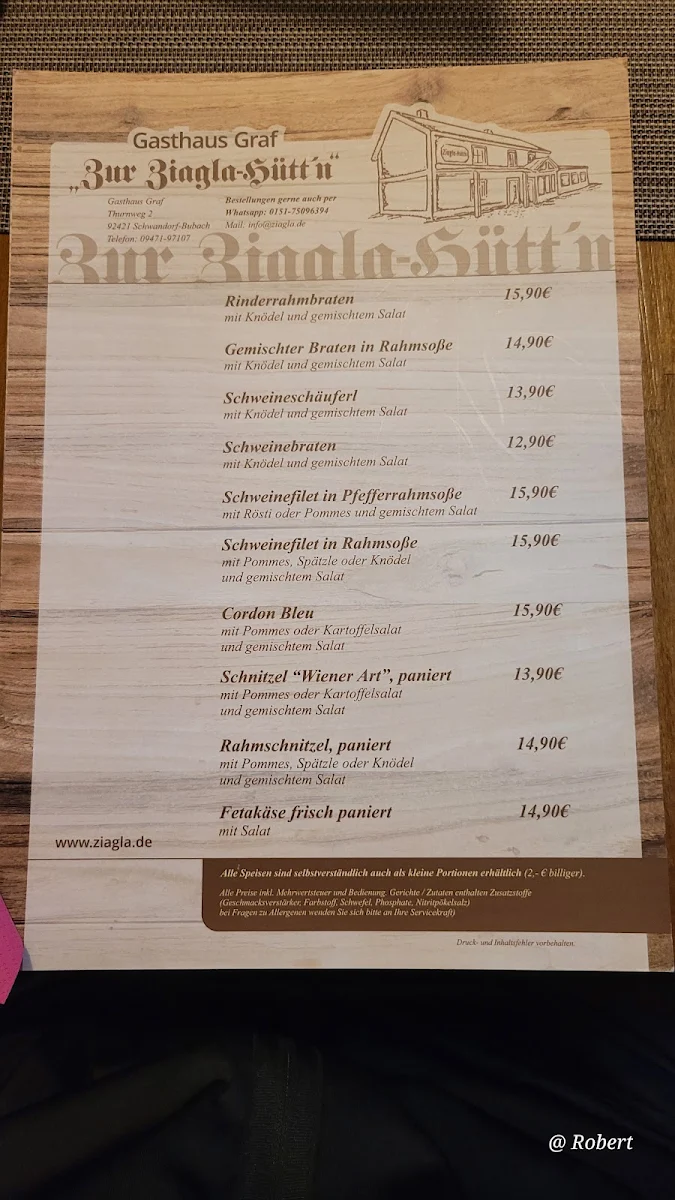 Gasthaus Graf
„Zur Ziagla-Hütt'n“
Ziagla-Hütt'n
Gasthaus Graf
Thurnweg 2
92421 Schwandorf-Bubach
Telefon: 09471-97107
Bestellungen gerne auch per
Whatsapp: 0151-75096394
Mail: info@ziagla.de
Zur Ziagla-Hütt'n
Rinderrahmbraten 15,90€
mit Knödel und gemischtem Salat
Gemischter Braten in Rahmsoße 14,90€
mit Knödel und gemischtem Salat
Schweineschäuferl 13,90€
mit Knödel und gemischtem Salat
Schweinebraten 12,90€
mit Knödel und gemischtem Salat
Schweinefilet in Pfefferrahmsoße 15,90€
mit Rösti oder Pommes und gemischtem Salat
Schweinefilet in Rahmsoße 15,90€
mit Pommes, Spätzle oder Knödel
und gemischtem Salat
Cordon Bleu 15,90€
mit Pommes oder Kartoffelsalat
und gemischtem Salat
Schnitzel “Wiener Art”, paniert 13,90€
mit Pommes oder Kartoffelsalat
und gemischtem Salat
Rahmschnitzel, paniert 14,90€
mit Pommes, Spätzle oder Knödel
und gemischtem Salat
Fetakäse frisch paniert 14,90€
mit Salat
www.ziagla.de
Alle Speisen sind selbstverständlich auch als kleine Portionen erhältlich (2,- € billiger).
Alle Preise inkl. Mehrwertsteuer und Bedienung. Gerichte / Zutaten enthalten Zusatzstoffe
(Geschmacksverstärker, Farbstoff, Schwefel, Phosphate, Nitritpökelsalz)
bei Fragen zu Allergenen wenden Sie sich bitte an Ihre Servicekraft)
Druck- und Inhaltsfehler vorbehalten.
@ Robert